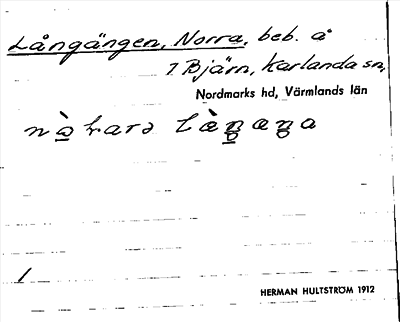 Långängen, Norra, beb. å
7 Bjärn, Karlanda sn,
Nordmarks hd, Värmlands län
1
HERMAN HULTSTRÖM 1912